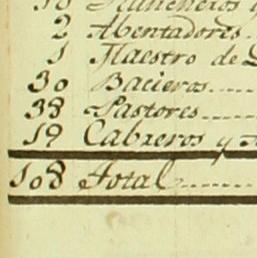 18 Rancheros y
2 Abentadores
1 Maestro de
30 Bacieros
38 Pastores
19 Cabreros y
108 Total